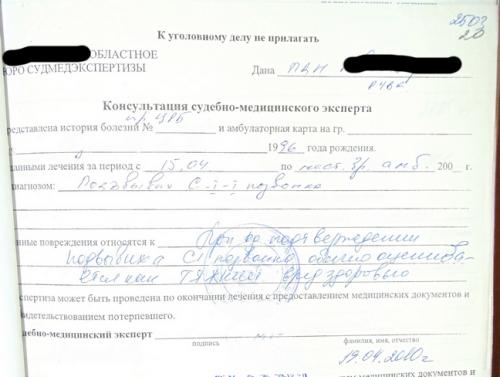 2503
20
К уголовному делу не прилагать
ОБЛАСТНОЕ
БЮРО СУДМЕДЭКСПЕРТИЗЫ
Дана
Консультация судебно-медицинского эксперта
пр. ЦРБ
редставлена история болезни № и амбулаторная карта на гр.
1996 года рождения.
данными лечения за период с 15.04 по наст. вр. амб. 200 г.
диагнозом: Подвывих С-1-1 позвонка
нные повреждения относятся к При подтверждении
подвывиха С1 позвонка обычно оценива-
ется как тяжкий вред здоровью
спертиза может быть проведена по окончании лечения с предоставлением медицинских документов и
видетельствованием потерпевшего.
дебно-медицинский эксперт
подпись фамилия, имя, отчество
19.04.2010г
медицинских документов и